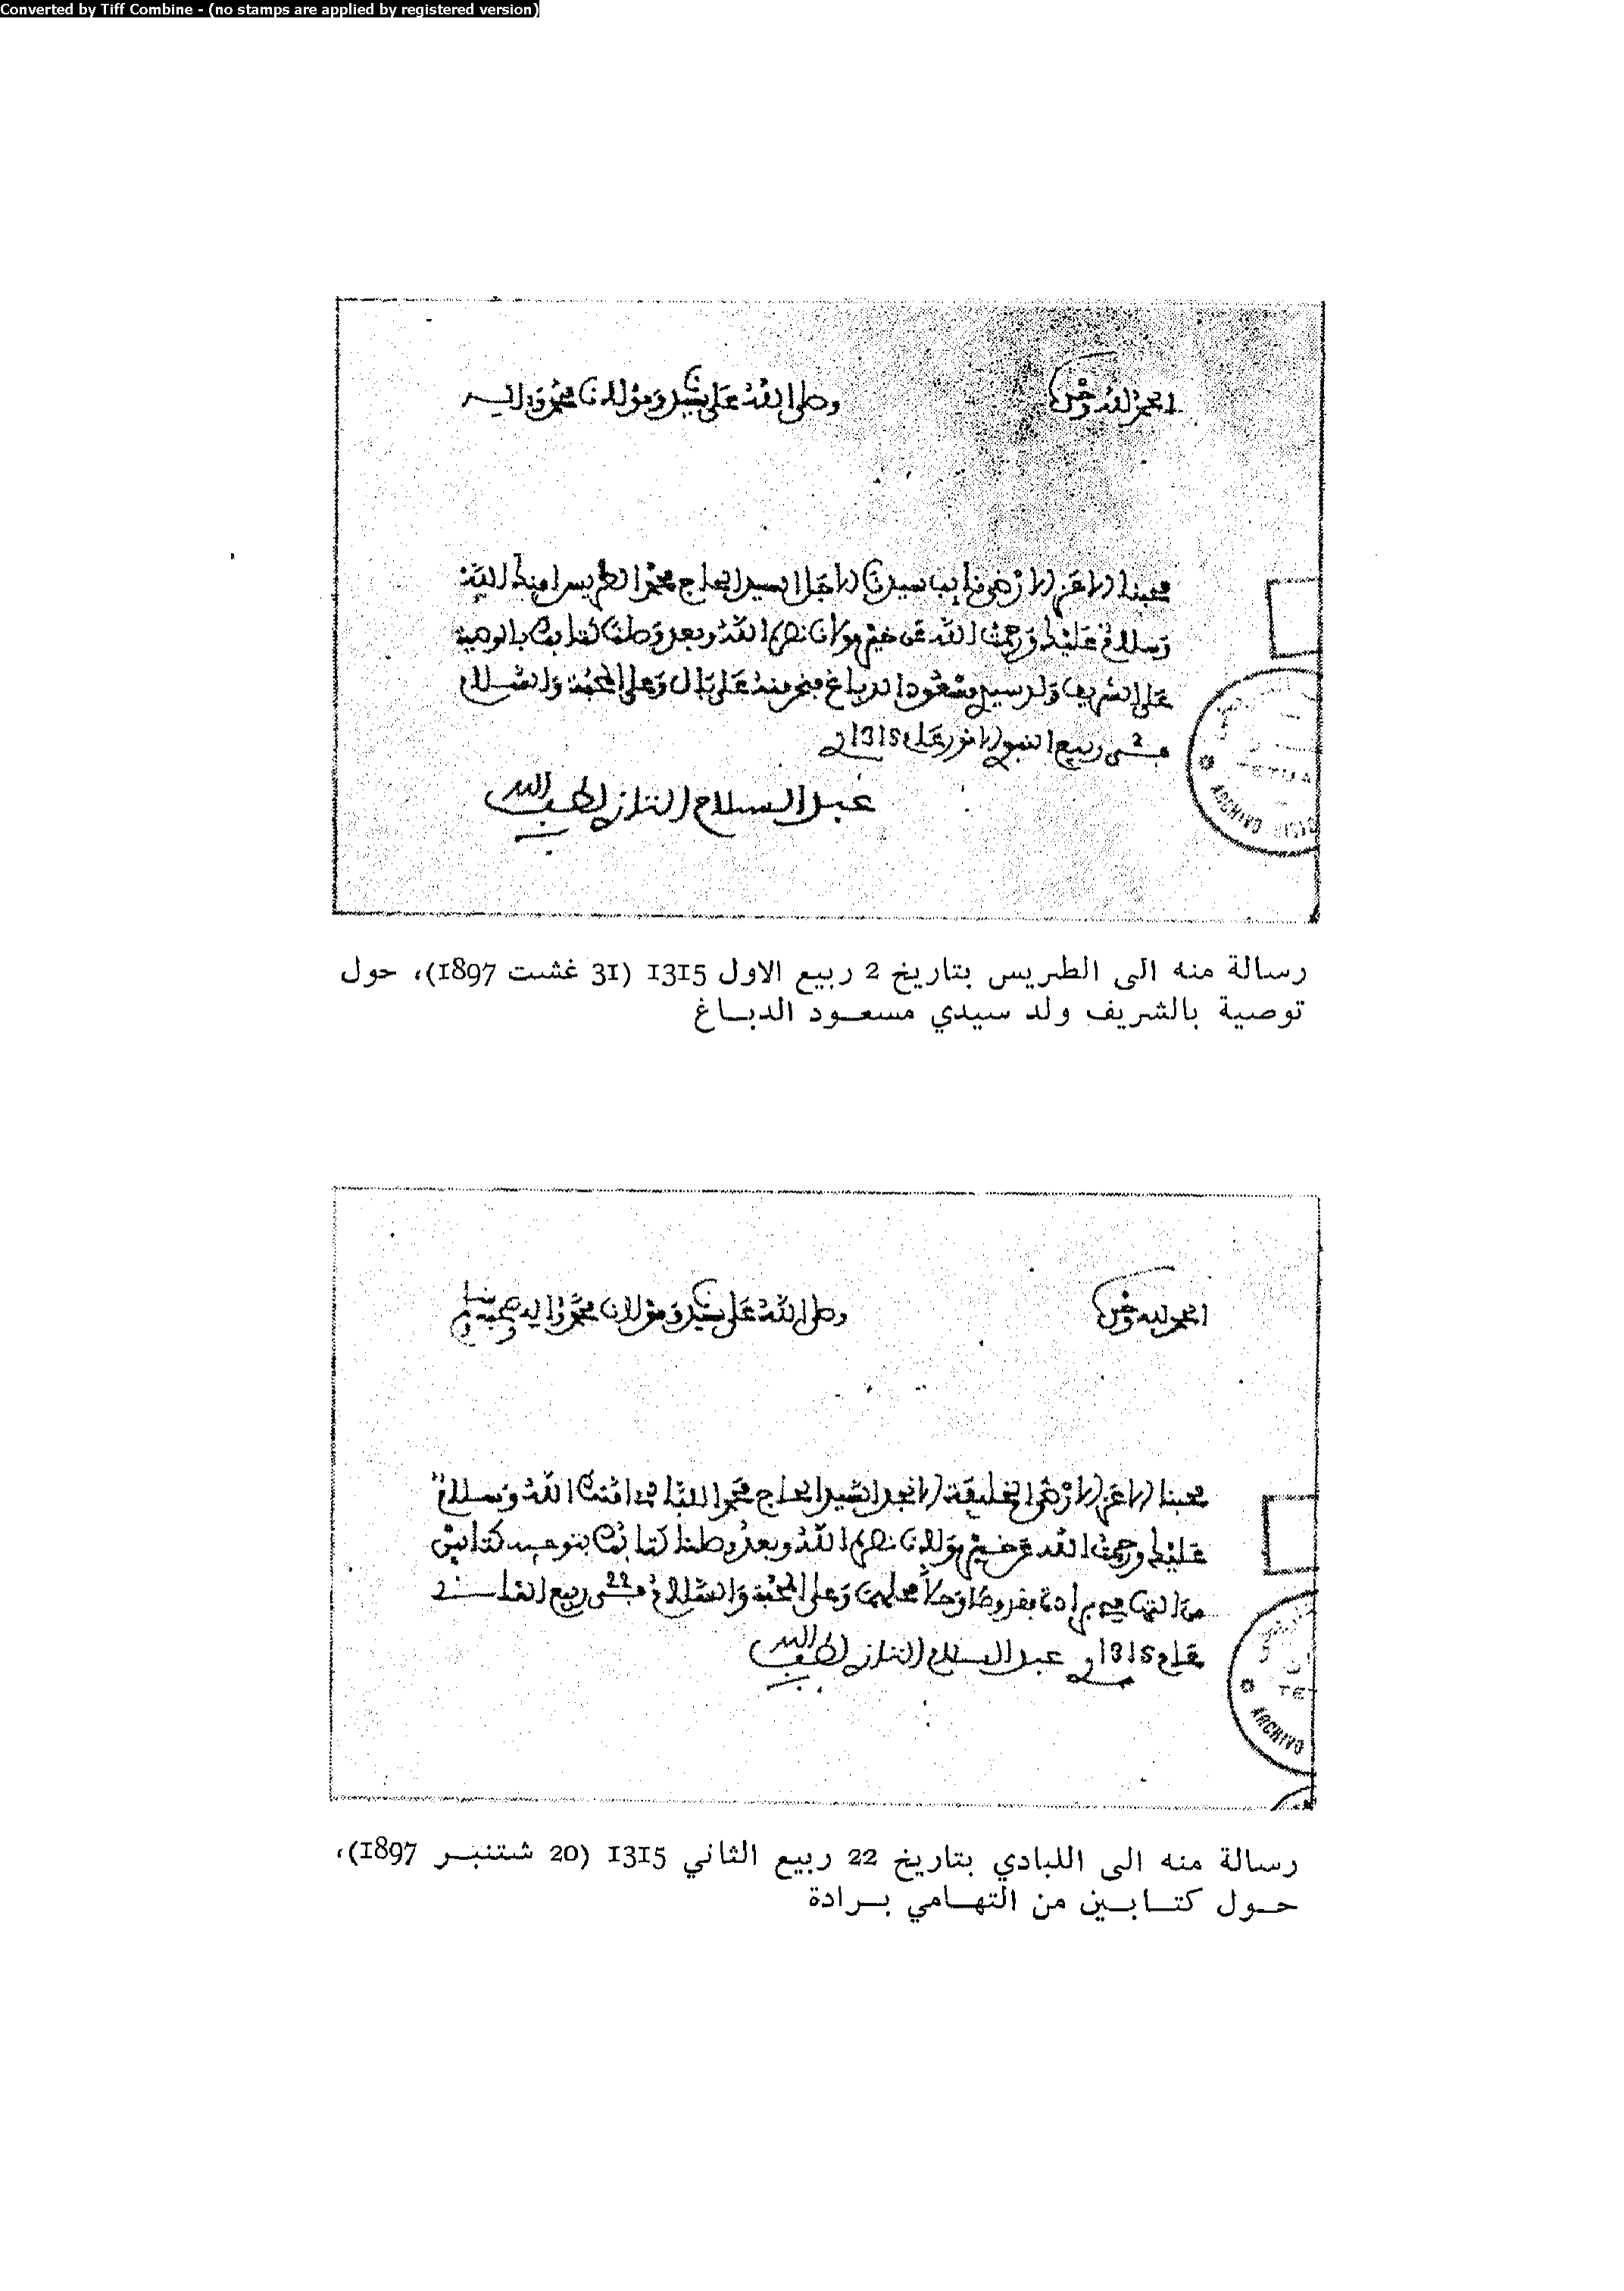 Converted by Tiff Combine - (no stamps are applied by registered version)
الحمد لله وحده
وصلى الله على سيدنا ومولانا محمد وءاله
محبنا الاعز الارضى نايب سيدنا الاجل السيد الحاج محمد الطريس امنك الله
وسلام عليك ورحمت الله عن خير مولانا نصره الله وبعد وصلنا كتابك بالوصية
على الشريف ولد سيدي مسعود الدباغ فنحن منه على بال وعلى المحبة والسلام
في 2 ربيع النبوي الانور عام 1315
عبد السلام التازي لطف الله به
TETUA
ARCHIVO
رسالة منه الى الطريس بتاريخ 2 ربيع الاول 1315 (31 غشت 1897)، حول
توصية بالشريف ولد سيدي مسعـود الدبـاغ
الحمد لله وحده
وصلى الله على سيدنا ومولانا محمد وءاله وصحبه وسلم
محبنا الاعز الارضى الخليفة الانجد السيد الحاج محمد اللبادي امنك الله وسلام
عليك ورحمت الله عن خير مولانا نصره الله وبعد وصلنا كتابك بتوجيه كتابين
من التهامي برادة وعلى المحبة والسلام في 22 ربيع الثاني
عام 1315 عبد السلام التازي لطف الله به
TE
ARCHIVO
رسالة منه الى اللبادي بتاريخ 22 ربيع الثاني 1315 (20 شتنبـر 1897)،
حـول كتـابـين من التهـامي بـرادة